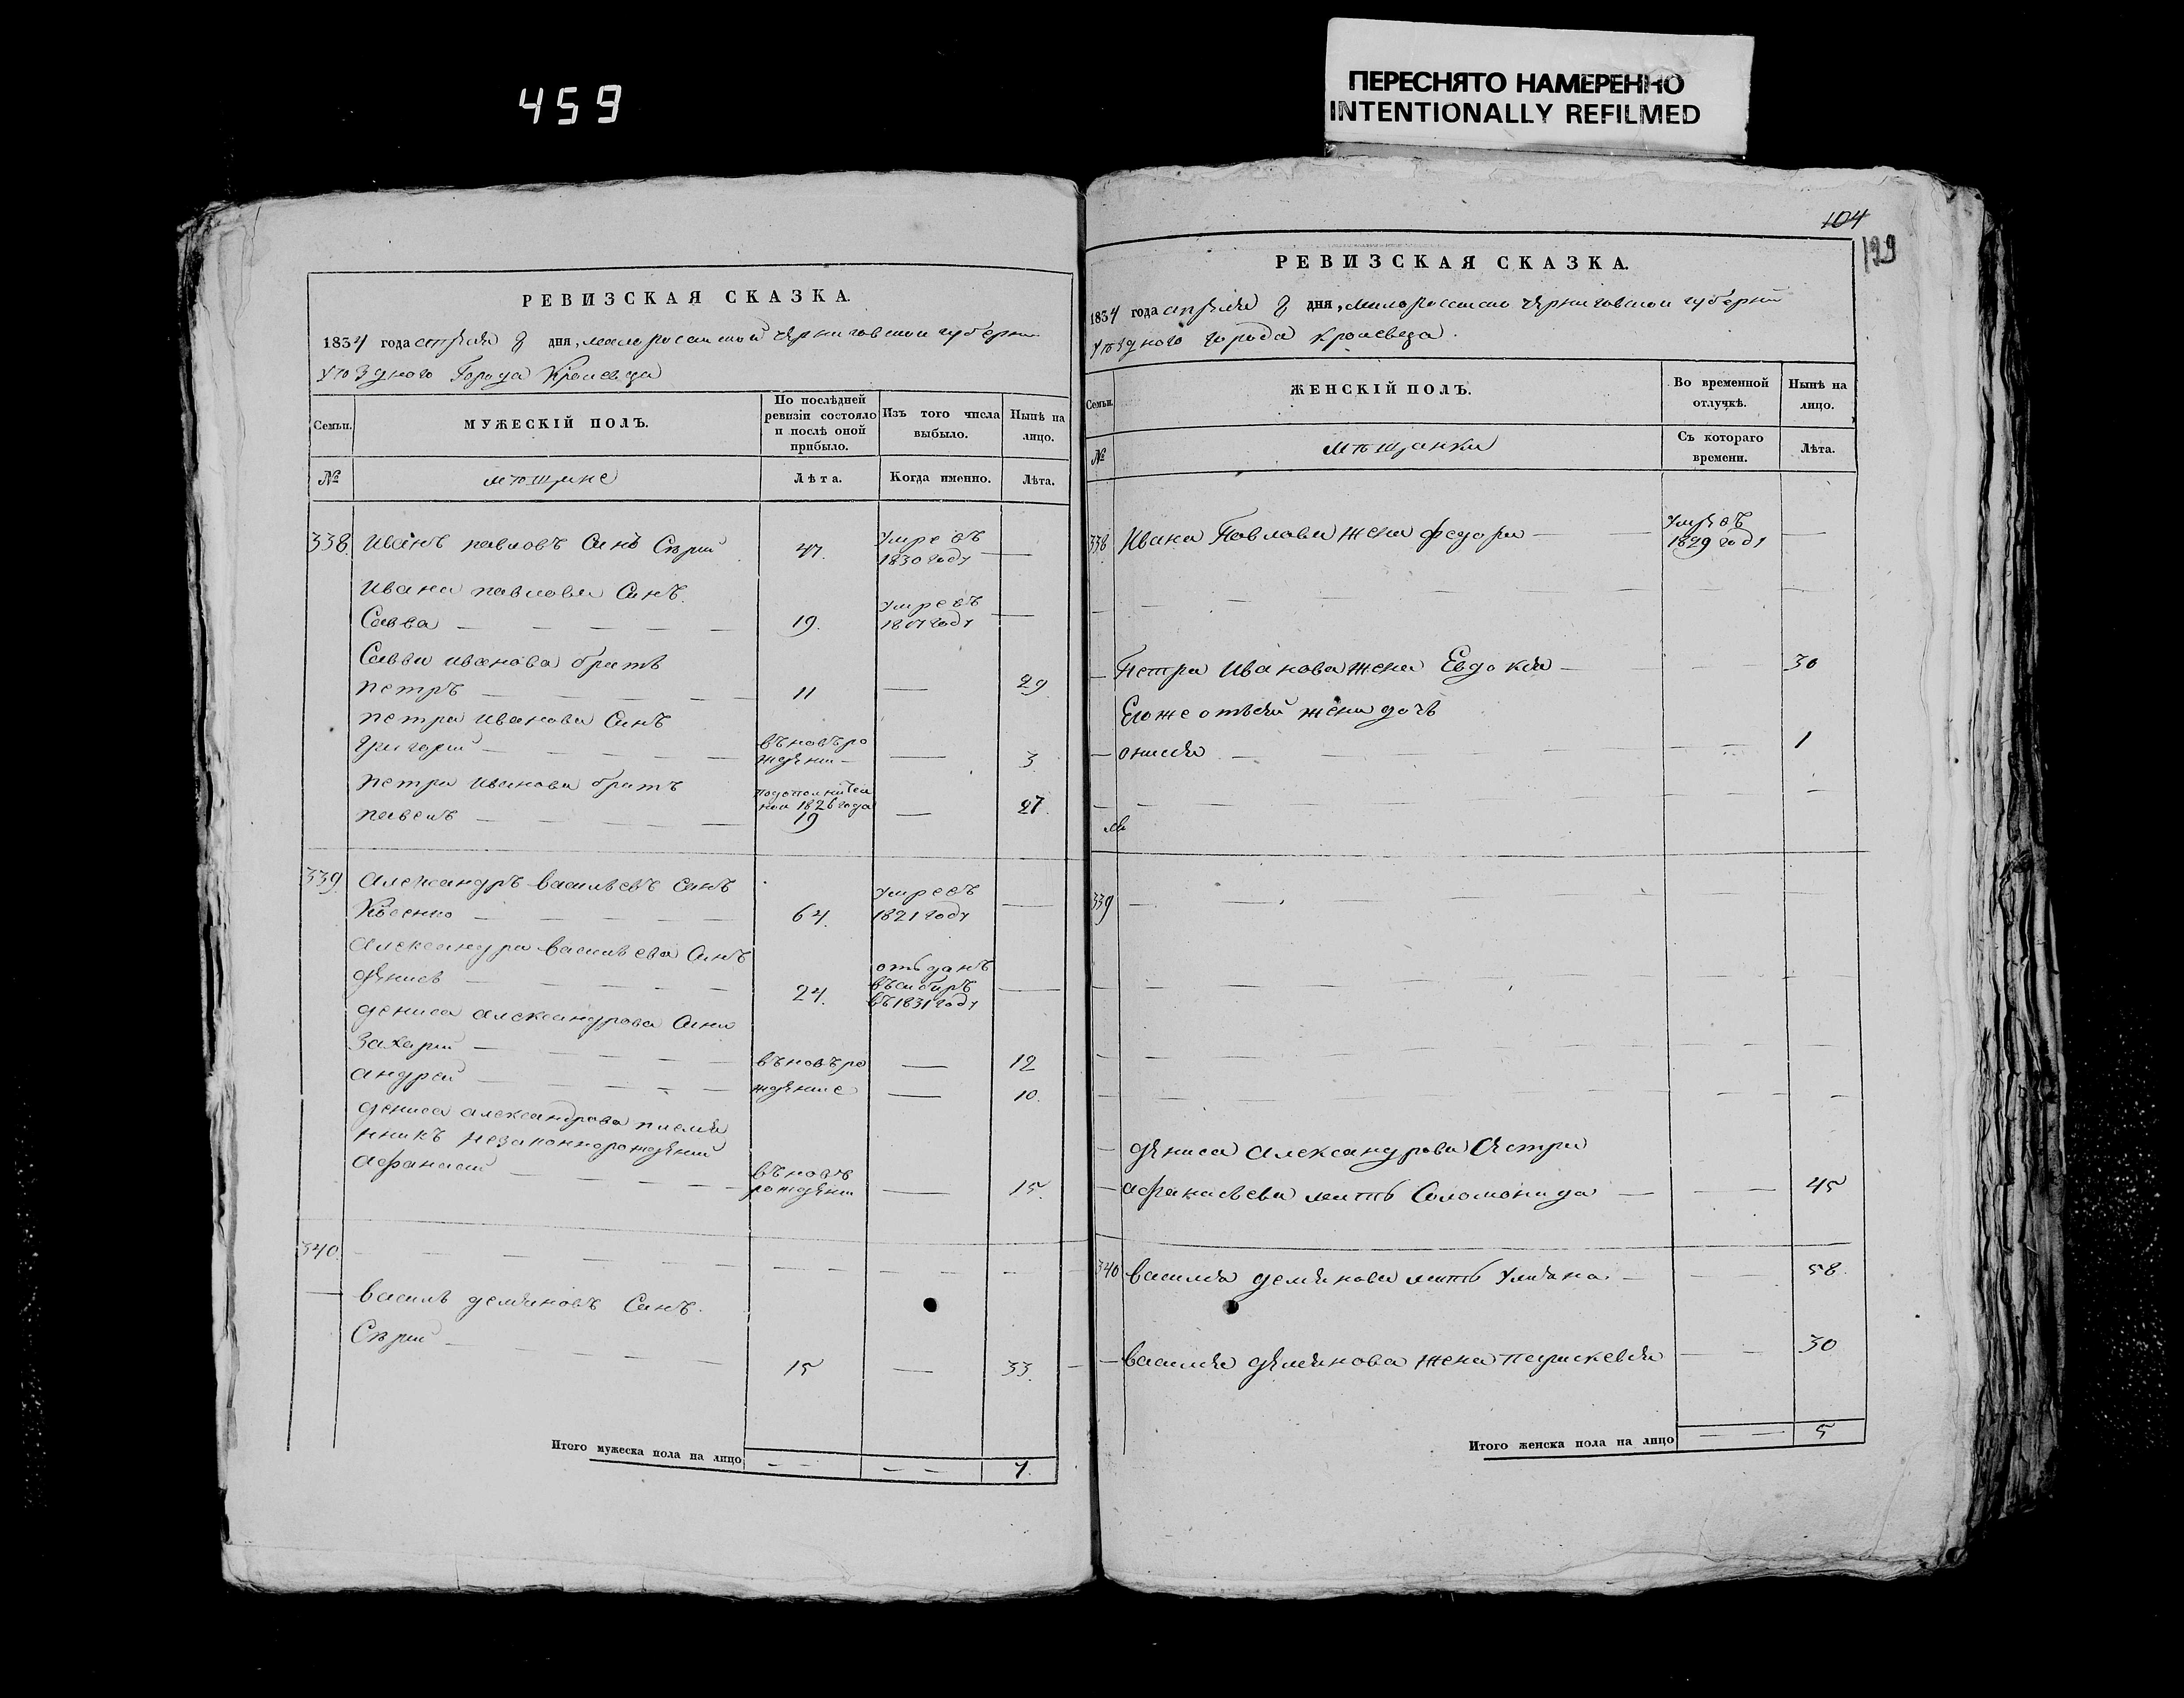 459
ПЕРЕСНЯТО НАМЕРЕННО
INTENTIONALLY REFILMED
РЕВИЗСКАЯ СКАЗКА.
1834 года апреля 8 дня, малороссийской черниговской губернии
уѣздного Города Кролевца
Семьи.
МУЖЕСКІЙ ПОЛЪ.
По послѣдней ревизіи состояло и послѣ оной прибыло.
Изъ того числа выбыло.
Нынѣ на лицо.
№
мѣщане
Лѣта.
Когда именно.
Лѣта.
338. Иванъ павловъ Синъ Сѣрий 47. умревъ 1830 году —
Ивана павлова Синъ
Савва — 19. умревъ году —
Савви иванова братъ
петръ — 11 — 29
петра иванова Синъ
григорий — въновъро ждении — 3
петра иванова братъ
павелъ — подополнител ной 1826 года 19 — 27
339. Александръ васильевъ Синъ
— 64. умревъ 1821 году —
Александра васильева Синъ
денисъ — 24. отъданъ въсибиръ въ 1831 году —
дениса александрова Сини
Захарий — въновъро — 12
андрей — ждение — 10.
дениса александрова племя
нникъ незаконнорождений
афанасий — въновъ рождении — 15.
340. —
василь демяновъ Синъ.
Сѣрий — 15 — 33.
Итого мужеска пола на лицо — — 7.
104
199
РЕВИЗСКАЯ СКАЗКА.
1834 года апреля 8 дня, малороссийско черниговской губернии
уѣздного города кролевца.
Семьи.
ЖЕНСКІЙ ПОЛЪ.
Во временной отлучкѣ.
Нынѣ на лицо.
№
мѣщанки
Съ котораго времени.
Лѣта.
338 Ивана Павлова жена федора — умревъ 1829 году —
— Петра Иванова жена Евдокия — 30
Егоже отъсей жени дочъ
— онисия — 1
339 —
дениса Александрова Сестра
— афанасьева мать Соломонида — 45
340 василия демянова мать Улияна — 58.
— василия демянова жена параскевия — 30
Итого женска пола на лицо — — 5